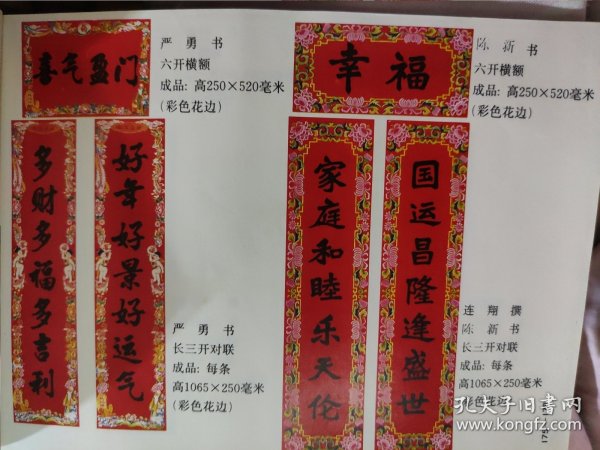 喜气盈门
严勇书
六开横额
成品：高250×520毫米
（彩色花边）
好年好景好运气
多财多福多吉利
严勇书
长三开对联
成品：每条
高1065×250毫米
（彩色花边）
幸福
陈新书
六开横额
成品：高250×520毫米
（彩色花边）
国运昌隆逢盛世
家庭和睦乐天伦
连翔撰
陈新书
长三开对联
成品：每条
高1065×250毫米
（彩色花边
孔夫子旧书网
www.kongfz.com